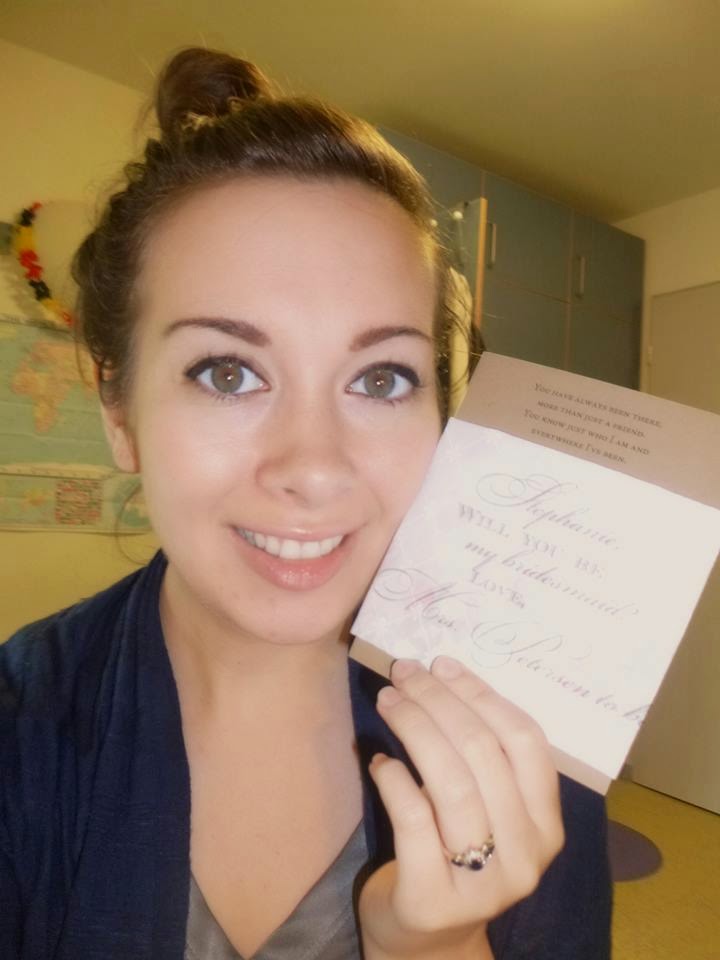 You have always been there,
more than just a friend.
You know just who I am and
everywhere I've been.
Stephanie,
WILL YOU BE
my bridesmaid?
LOVE,
Mrs. Peterson to be